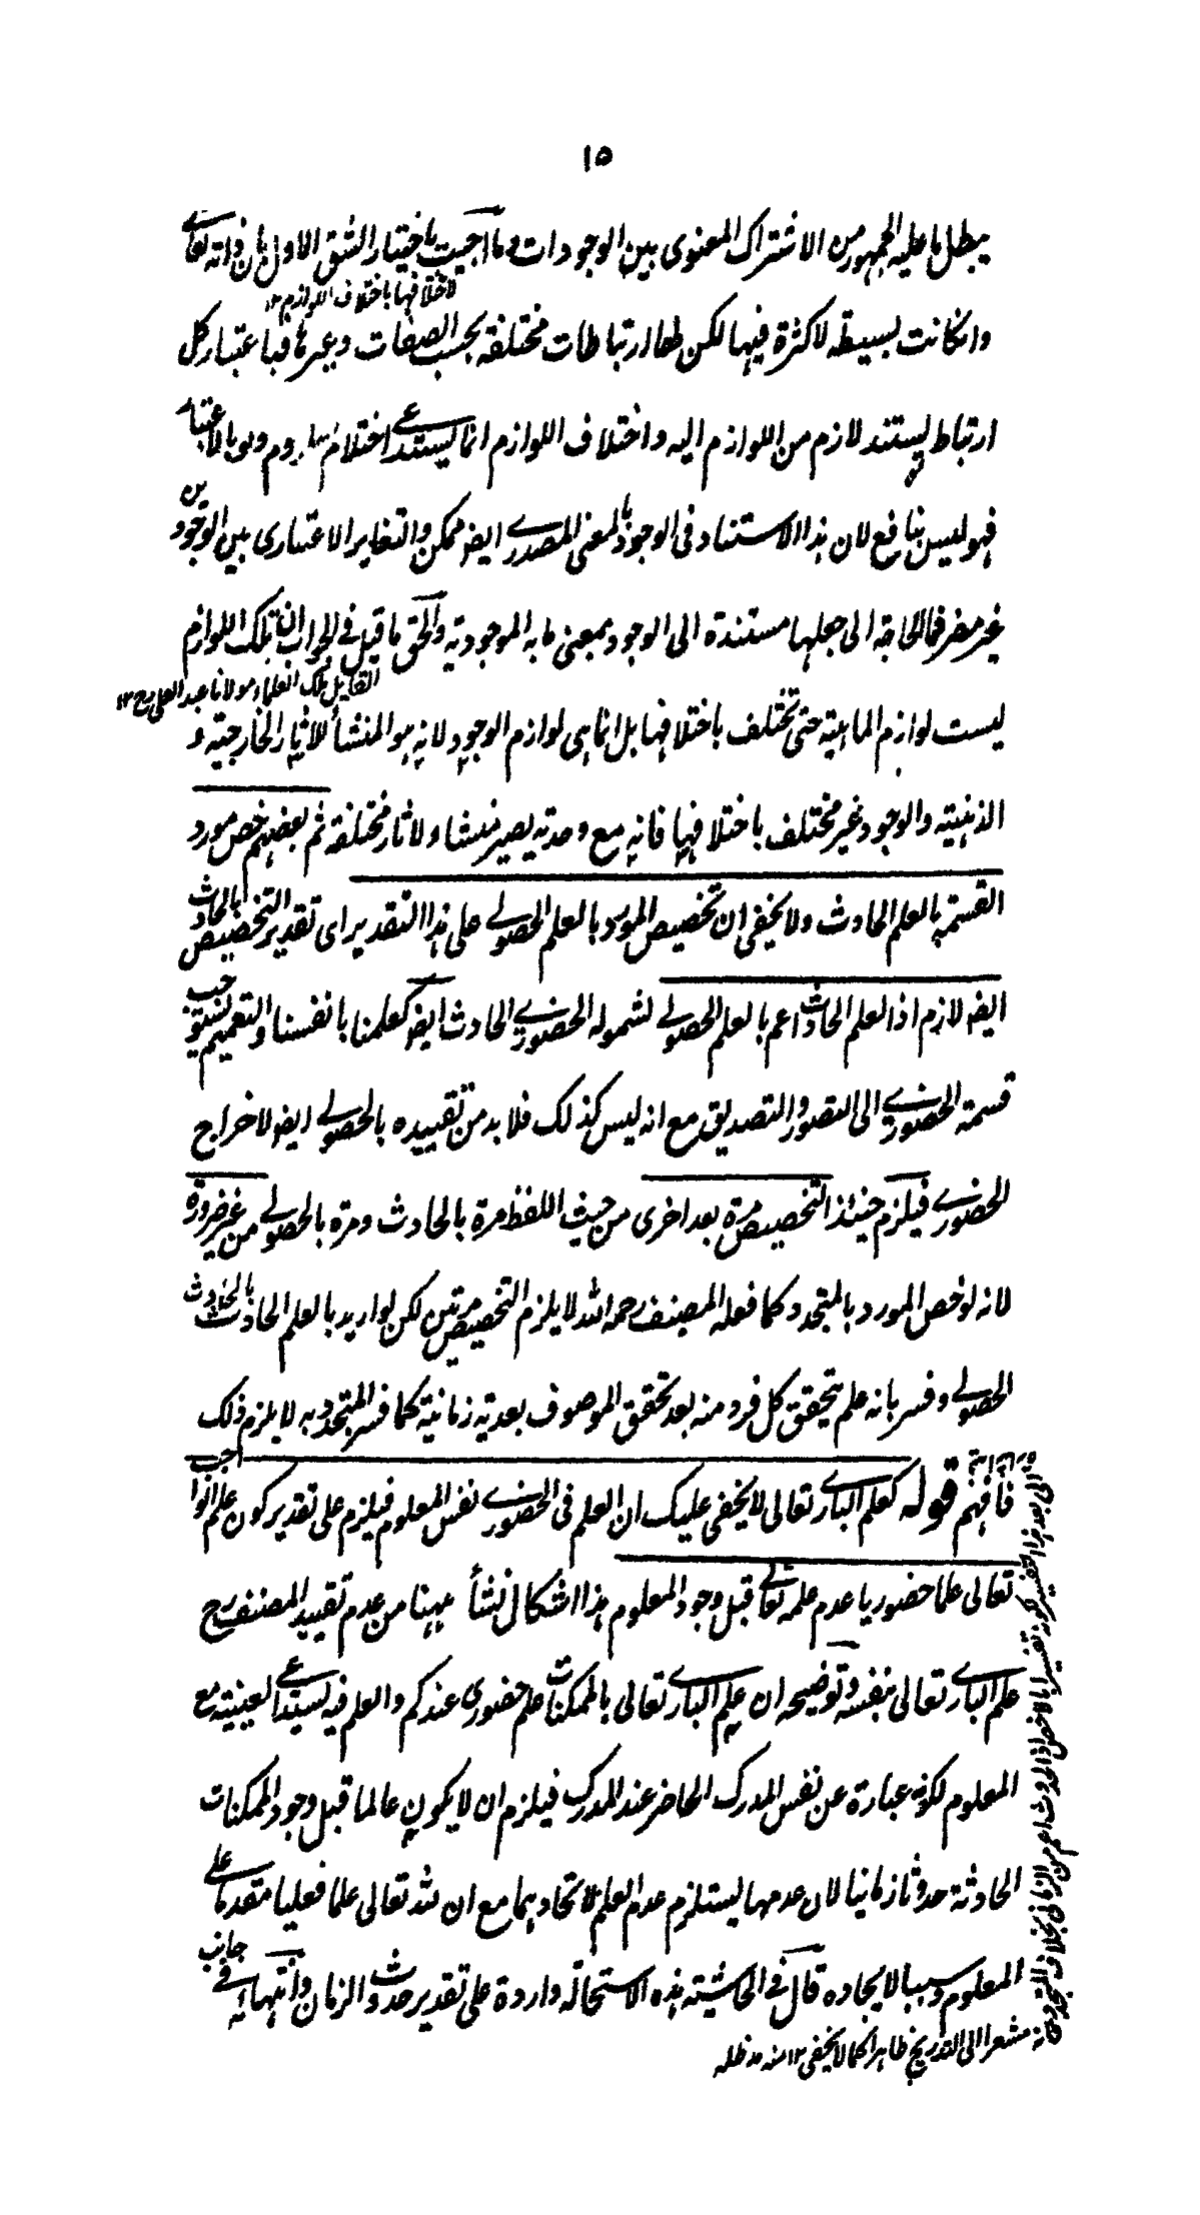 ١٥
يبطل ما عليه الجمهور من الاشتراك المعنوى بين الوجودات وما اجيب باختيار الشق الاول بان ذاته تعالے
لاختلافها باختلاف اللوازم ١٢
وان كانت بسيطة لا كثرة فيها لكن لها ارتباطات مختلفة بحسب الصفات وغيرها فباعتبار كل
ارتباط يستند لازم من اللوازم اليه واختلاف اللوازم انما يستدعے اختلاف الملزوم ولو بالاعتبار
فهو ليس بنافع لان هذا الاستناد فى الوجود بالمعنى المصدرے ايضا ممكن والتغاير الاعتبارى بين الوجودين
غير مضر فما الحاجة الى جعلها مستندة الى الوجود بمعنى ما به الموجودية والحق ما قيل فے الجواب ان تلك اللوازم
القايل ملك العلماء مولانا عبد العلى رح ١٢
ليست لوازم الماهية حتى تختلف باختلافها بل انما هى لوازم الوجود لانه هو المنشأ للاثار الخارجية و
الذهنية والوجود غير مختلف باختلافها فانه مع وحدته يصير منشاء لاثار مختلفة ثم بعضهم خص مورد
القسمة بالعلم الحادث ولا يخفى ان تخصيص المورد بالعلم الحصولے على هذا التقدير اى تقدير التخصيص بالحادث
ايضا لازم اذ العلم الحادث اعم بالعلم الحصولے لشموله الحضورے الحادث ايضا كعلمنا بانفسنا والتعميم يستوجب
قسمة الحضورے الى التصور والتصديق مع انه ليس كذلك فلا بد من تقييده بالحصولے ايضا لاخراج
الحضورے فيلزم حينئذ التخصيص مرة بعد اخرى من حيث اللفظ مرة بالحادث ومرة بالحصولے من غير ضرورة
لانه لو خص المورد بالمتجدد كما فعله المصنف رحمه الله لا يلزم التخصيص مرتين لكن لو اريد بالعلم الحادث الحادث
الحصولے وفسر بانه علم يتحقق كل فرد منه بعد تحقق الموصوف بعدية زمانية كما فسر المتجدد به لا يلزم ذلك
فافهم قوله كعلم البارے تعالى لا يخفى عليك ان العلم فى الحضورے نفس المعلوم فيلزم على تقدير كون علم الواجب
تعالى علما حضوريا عدم علمه تعالے قبل وجود المعلوم هذا اشكال نشأ ههنا من عدم تقييد المصنف رح
علم البارے تعالى بنفسه وتوضيحه ان علم البارے تعالى بالممكنات علم حضورى عندكم والعلم فيه يستدعے العينية مع
المعلوم لكونه عبارة عن نفس المدرك الحاضر عند المدرك فيلزم ان لا يكون عالما قبل وجود الممكنات
الحادثة حدوثا زمانيا لان عدمها يستلزم عدم العلم لاتحادهما مع ان لله تعالى علما فعليا مقدما علے
المعلوم وسببا لايجاده قال فے الحاشية هذه الاستحالة واردة على تقدير حدوث الزمان وانتهائه فے جانب
فانه مشعر الى التدريج ظاهرا كما لا يخفى ١٢ منه مد ظله